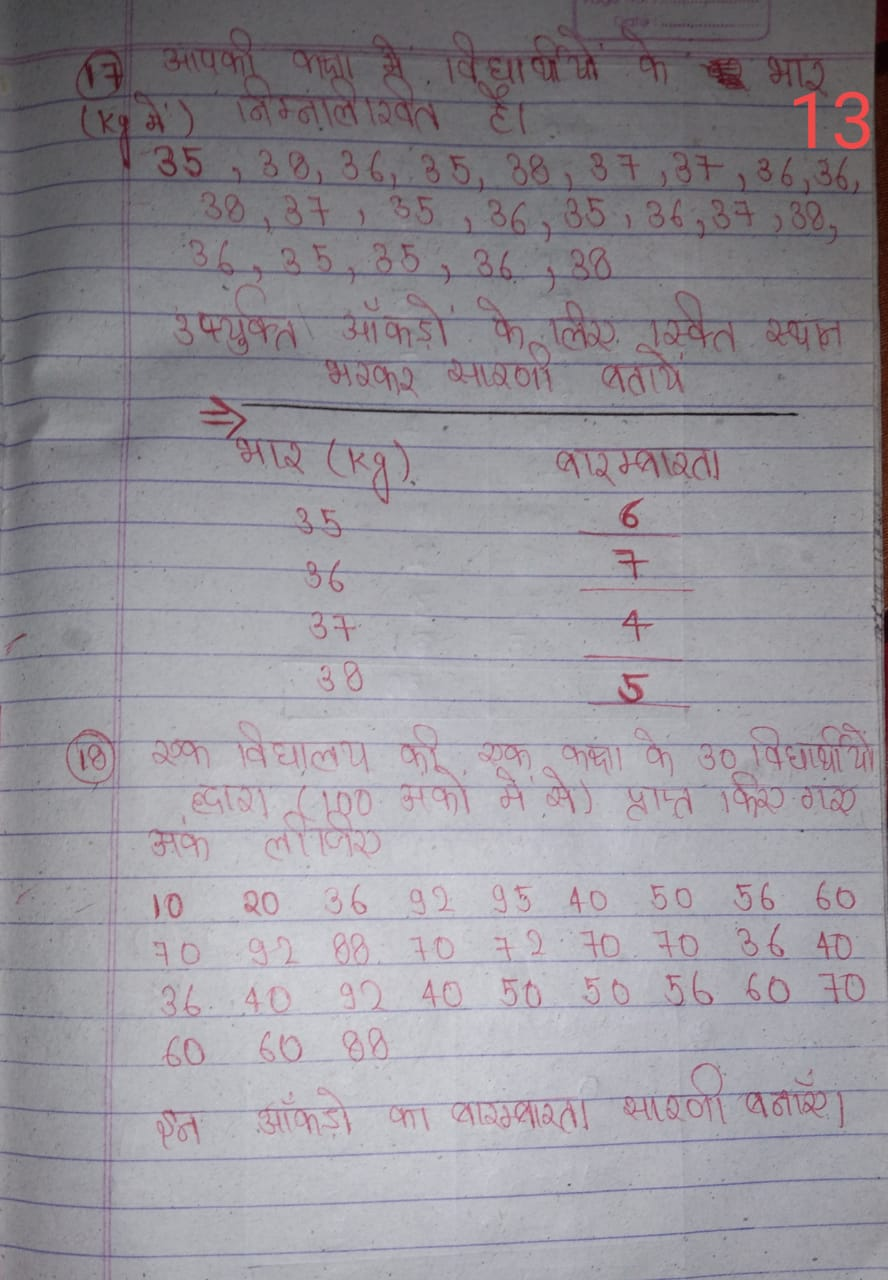 Date :
13
17 आपकी कक्षा में विद्यार्थियों के भार
(Kg में) निम्नलिखित है।
35 , 38, 36, 35, 38, 37, 37, 36, 36,
38, 37, 35, 36, 35, 36, 37, 38,
36, 35, 35, 36, 38
उपर्युक्त आँकड़ों के लिए रिक्त स्थान
भरकर सारणी बतायें
⇒
भार (Kg). बारम्बारता
35 6
36 7
37 4
38 5
18 एक विद्यालय की एक कक्षा के 30 विद्यार्थियों
द्वारा (100 अंको में से) प्राप्त किए गए
अंक लीजिए
10 20 36 92 95 40 50 56 60
70 92 88 70 72 70 70 36 40
36 40 92 40 50 50 56 60 70
60 60 88
इन आँकड़ो का बारम्बारता सारणी बनाएँ।